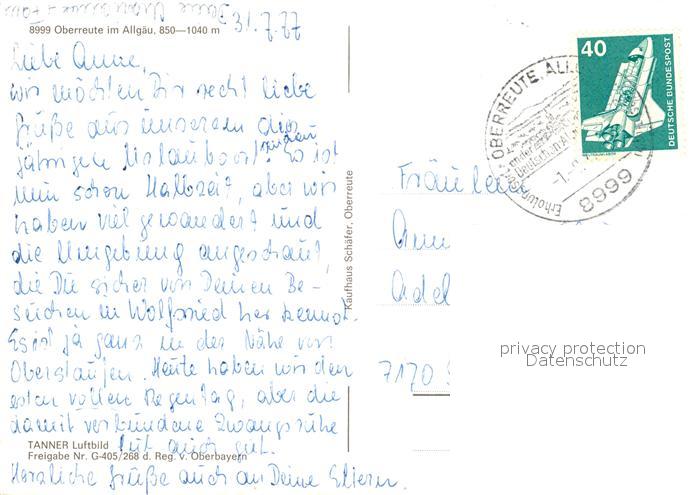 31.7.77
8999 Oberreute im Allgäu, 850—1040 m
Liebe Anne,
wir möchten Dir recht liebe
Grüße aus unserem dies
jährigen Urlaubsort senden
Es ist
nun schon Halbzeit, aber wir
haben viel gewandert und
die Umgebung angeschaut,
die Du sicher von Deinen Be-
suchen in Wolfsried her kennst.
Es ist ja ganz in der Nähe von
Oberstaufen. Heute haben wir den
ersten vollen Regentag, aber die
damit verbundene Zwangsruhe
tut auch gut.
TANNER Luftbild
Freigabe Nr. G-405/268 d. Reg. v. Oberbayern
Herzliche Grüße auch an Deine Eltern.
Kaufhaus Schäfer, Oberreute
OBERREUTE, ALL
Deutschen Al
Erholung
8999
40
DEUTSCHE BUNDESPOST
Fräulein
Ann
Adel
7170
privacy protection
Datenschutz